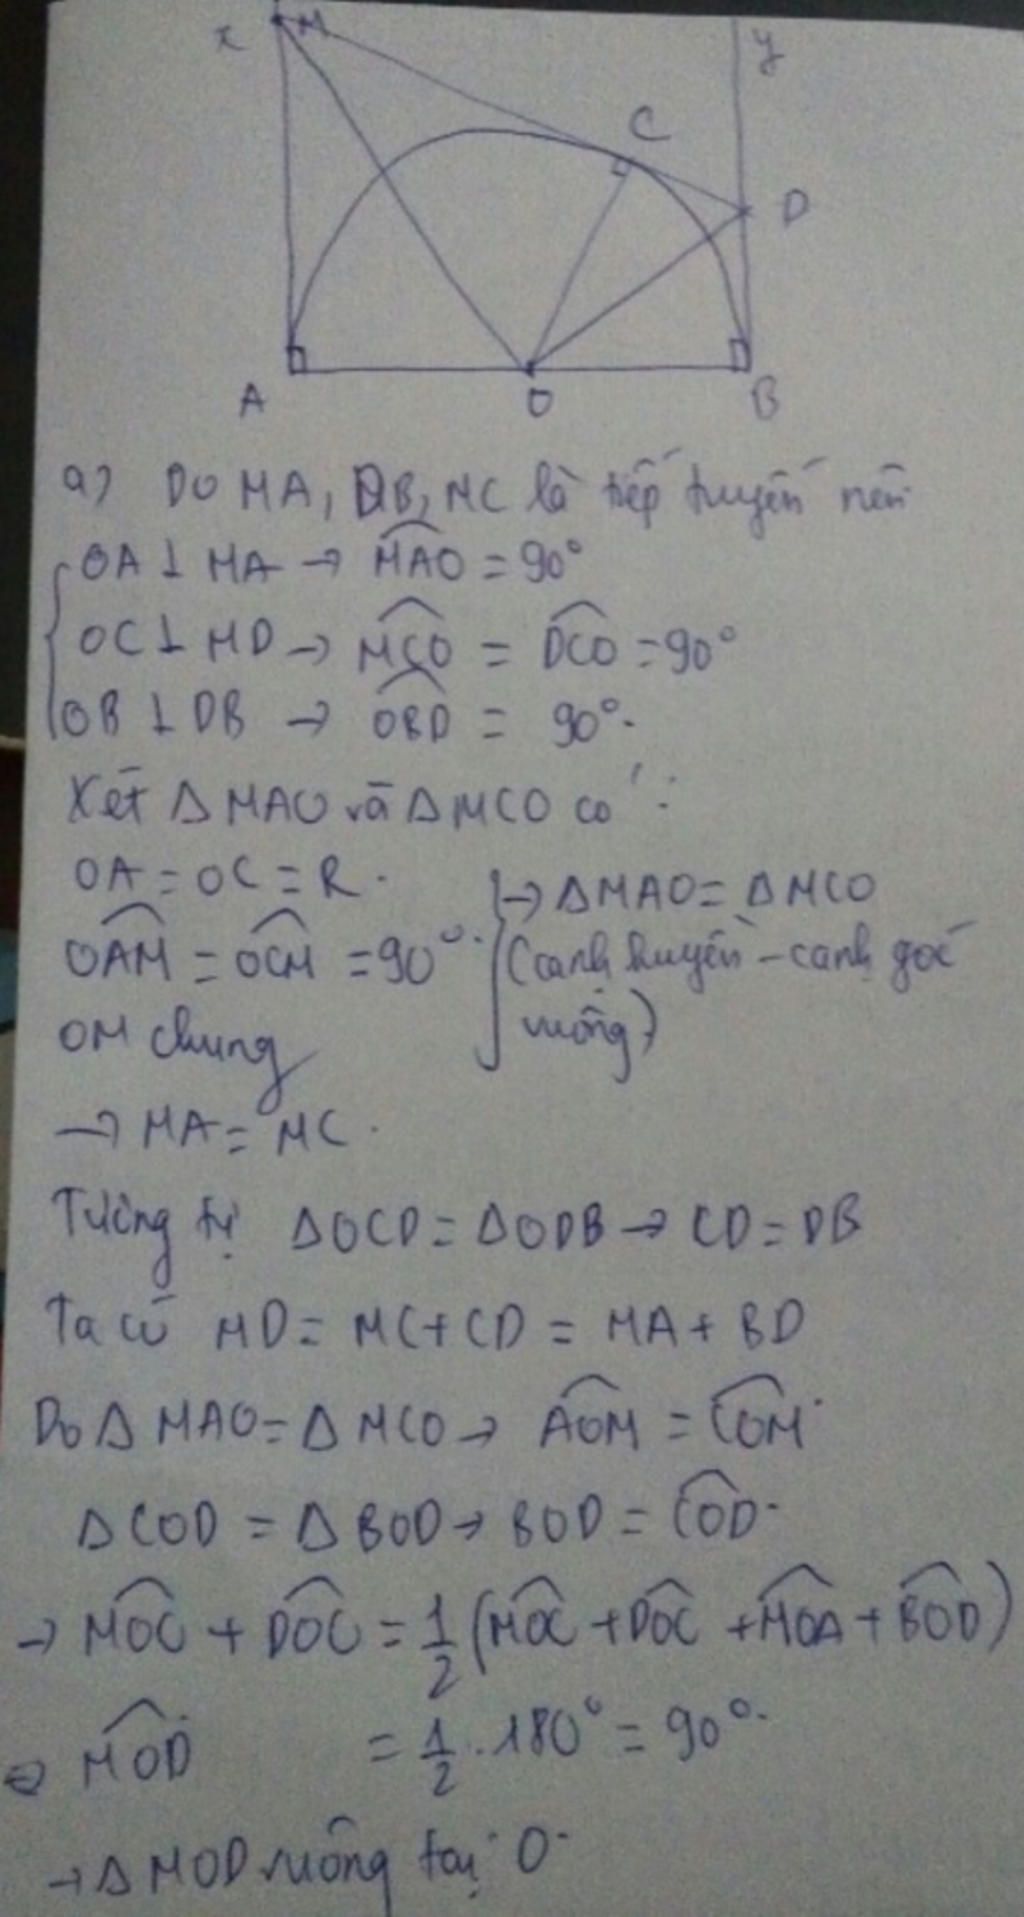 x M y
C
D
A O B
a) Do MA, DB, MC là tiếp tuyến nên
OA ⊥ MA → MAO = 90°
OC ⊥ MD → MCO = DCO = 90°
OB ⊥ DB → OBD = 90°.
Xét Δ MAO và Δ MCO có :
OA = OC = R.
OAM = OCM = 90°.
OM chung
→ Δ MAO = Δ MCO
(cạnh huyền - cạnh góc
vuông)
→ MA = MC.
Tương tự Δ OCD = Δ ODB → CD = DB
Ta có MD = MC + CD = MA + BD
Do Δ MAO = Δ MCO → AOM = COM.
Δ COD = Δ BOD → BOD = COD.
→ MOC + DOC = 1/2 (MOC + DOC + MOA + BOD)
⇒ MOD = 1/2 . 180° = 90°.
→ Δ MOD vuông tại O.